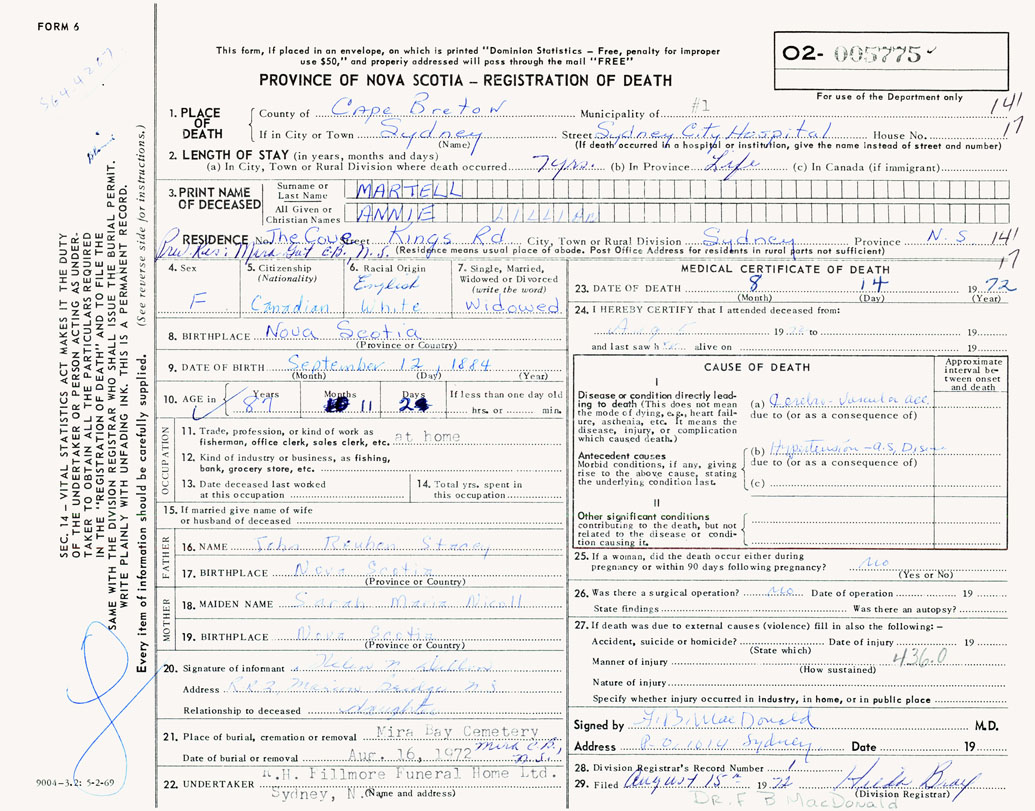 FORM 6
This form, if placed in an envelope, on which is printed "Dominion Statistics – Free, penalty for improper
use $50," and properly addressed will pass through the mail "FREE"
PROVINCE OF NOVA SCOTIA – REGISTRATION OF DEATH
O2- 005775
For use of the Department only
141
17
1. PLACE OF DEATH
County of Cape Breton Municipality of #1
If in City or Town Sydney Street Sydney City Hospital House No.
(Name) (If death occurred in a hospital or institution, give the name instead of street and number)
2. LENGTH OF STAY (in years, months and days)
(a) In City, Town or Rural Division where death occurred 7 yrs. (b) In Province Life (c) In Canada (if immigrant)
3. PRINT NAME OF DECEASED
Surname or Last Name MARTELL
All Given or Christian Names ANNIE LILLIAN
RESIDENCE No. The Cove Street Kings Rd City, Town or Rural Division Sydney Province N.S 141
17
Prev Res: Mira Gut C.B. N.S. (Residence means usual place of abode. Post Office Address for residents in rural parts not sufficient)
4. Sex F
5. Citizenship (Nationality) Canadian
6. Racial Origin English White
7. Single, Married, Widowed or Divorced (write the word) Widowed
8. BIRTHPLACE Nova Scotia
(Province or Country)
9. DATE OF BIRTH September 12, 1884
(Month) (Day) (Year)
10. AGE in Years 87 Months 11 Days 2 If less than one day old hrs. or min.
OCCUPATION
11. Trade, profession or kind of work as fisherman, office clerk, sales clerk, etc. at home
12. Kind of industry or business, as fishing, bank, grocery store, etc.
13. Date deceased last worked at this occupation
14. Total yrs. spent in this occupation
15. If married give name of wife or husband of deceased
FATHER
16. NAME John Reuben Stacey
17. BIRTHPLACE Nova Scotia
(Province or Country)
MOTHER
18. MAIDEN NAME Sarah Maria Nicoll
19. BIRTHPLACE Nova Scotia
(Province or Country)
20. Signature of informant Helen M
Address R.R.2 Marion Bridge N S
Relationship to deceased daught
21. Place of burial, cremation or removal Mira Bay Cemetery
Date of burial or removal Aug. 16, 1972 Mira C.B., N.S.
22. UNDERTAKER H. Fillmore Funeral Home Ltd.
Sydney, N. (Name and address)
MEDICAL CERTIFICATE OF DEATH
23. DATE OF DEATH 8 14 1972
(Month) (Day) (Year)
24. I HEREBY CERTIFY that I attended deceased from:
Aug 19 to 19
and last saw h alive on 19
CAUSE OF DEATH
Approximate interval between onset and death
I
Disease or condition directly leading to death (This does not mean the mode of dying, e.g., heart failure, asthenia, etc. It means the disease, injury, or complication which caused death.)
(a) Cerebro-Vascular acc.
due to (or as a consequence of)
Antecedent causes
Morbid conditions, if any, giving rise to the above cause, stating the underlying condition last.
(b) Hypertension - a.s. Dis
due to (or as a consequence of)
(c)
II
Other significant conditions
contributing to the death, but not related to the disease or condition causing it.
25. If a woman, did the death occur either during pregnancy or within 90 days following pregnancy? No
(Yes or No)
26. Was there a surgical operation? no Date of operation 19
State findings Was there an autopsy?
27. If death was due to external causes (violence) fill in also the following: –
Accident, suicide or homicide? Date of injury 19
(State which)
Manner of injury 436.0
(How sustained)
Nature of injury
Specify whether injury occurred in industry, in home, or in public place
Signed by F.B. MacDonald M.D.
Address P.O. 1014 Sydney Date 19
28. Division Registrar's Record Number 1
29. Filed August 15th 1972 Hilda Bray
(Division Registrar)
DR. F B MacDonald
SEC. 14 – VITAL STATISTICS ACT MAKES IT THE DUTY
OF THE UNDERTAKER OR PERSON ACTING AS UNDER-
TAKER TO OBTAIN ALL THE PARTICULARS REQUIRED
IN THE "REGISTRATION OF DEATH" AND TO FILE THE
SAME WITH THE DIVISION REGISTRAR WHO SHALL ISSUE THE BURIAL PERMIT.
WRITE PLAINLY WITH UNFADING INK. THIS IS A PERMANENT RECORD.
Every item of information should be carefully supplied. (See reverse side for instructions.)
9004-3.2: 5-2-69